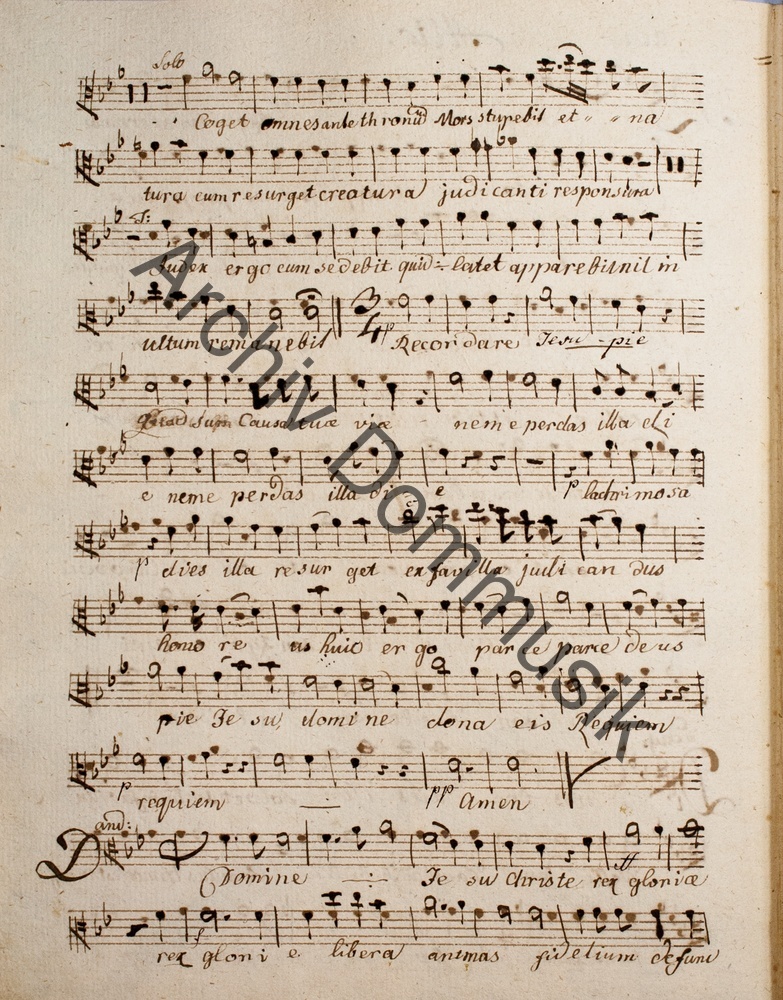 Solo
Coget omnes ante thronum Mors stupebit et " " na
tura cum resurget creatura judicanti responsura
T:
Judex ergo cum sedebit quid -:- latet apparebit nil in
ultum remanebit 3/4 p Recordare Jesu - pie
Quod sum Causa tuæ viæ ne me perdas illa di
e ne me perdas illa di e p lacrimosa
p dies illa resur get ex favilla judi can dus
homo re us huic er go par ce parce de us
pie Je su, domi ne dona eis Requiem
p requiem -:- pp Amen
and:
Domine -:- Je su Christe rex ff gloriæ
rex f glori e libera animas fidelium defunc
Archiv Dommusik